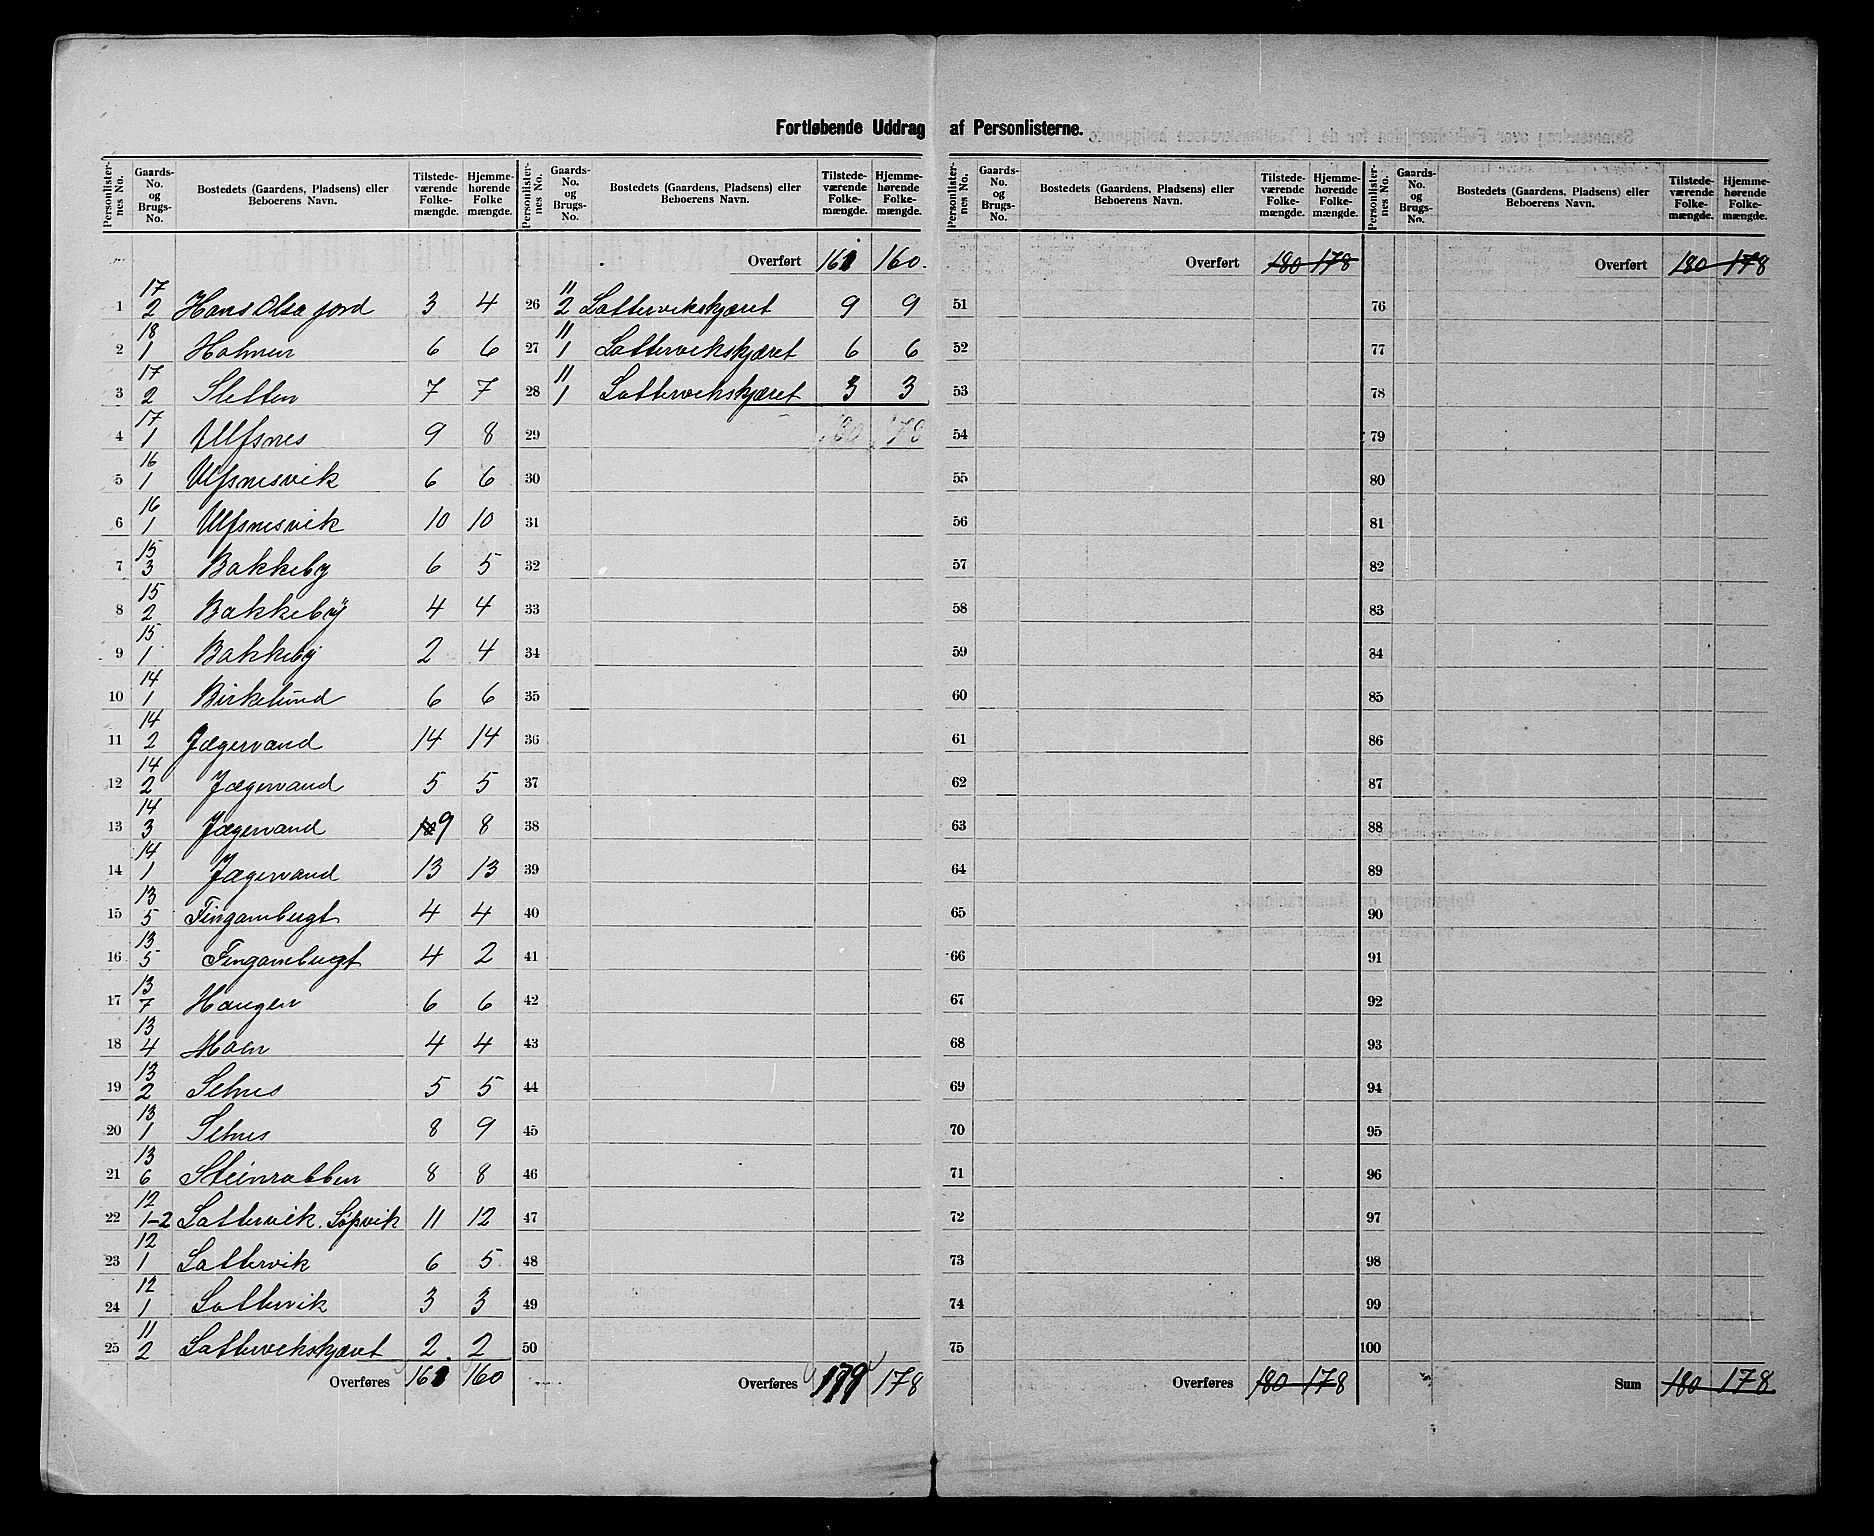 Fortløbende Uddrag af Personlisterne.
Personlister-nes No. | Gaards-No. og Brugs-No. | Bostedets (Gaardens, Pladsens) eller Beboerens Navn. | Tilstede-værende Folke-mængde. | Hjemme-hørende Folke mængde.
1 | 17 2 | Hans Olsa jord | 3 | 4
2 | 18 1 | Holmen | 6 | 6
3 | 17 2 | Sletten | 7 | 7
4 | 17 1 | Ulfsnes | 9 | 8
5 | 16 1 | Ulfsnesvik | 6 | 6
6 | 16 1 | Ulfsnesvik | 10 | 10
7 | 15 3 | Bakkeby | 6 | 5
8 | 15 2 | Bakkeby | 4 | 4
9 | 15 1 | Bakkeby | 2 | 4
10 | 14 1 | Birkelund | 6 | 6
11 | 14 2 | Jægervand | 14 | 14
12 | 14 2 | Jægervand | 5 | 5
13 | 14 3 | Jægervand | 9 | 8
14 | 14 1 | Jægervand | 13 | 13
15 | 13 5 | Fingambugt | 4 | 4
16 | 13 5 | Fingambugt | 4 | 2
17 | 13 7 | Haugen | 6 | 6
18 | 13 4 | Moen | 4 | 4
19 | 13 2 | Selnes | 5 | 5
20 | 13 1 | Selnes | 8 | 9
21 | 13 6 | Steinrabben | 8 | 8
22 | 12 1-2 | Lattervik. Søpvik | 11 | 12
23 | 12 1 | Lattervik | 6 | 5
24 | 12 1 | Lattervik | 3 | 3
25 | 11 2 | Lattervikskjæret | 2 | 2
Overføres | 161 | 160
Personlister-nes No. | Gaards-No. og Brugs-No. | Bostedets (Gaardens, Pladsens) eller Beboerens Navn. | Tilstede-værende Folke-mængde. | Hjemme-hørende Folke-mængde.
Overført | 161 | 160.
26 | 11 2 | Lattervikskjæret | 9 | 9
27 | 11 1 | Lattervikskjæret | 6 | 6
28 | 11 1 | Lattervikskjæret | 3 | 3
29 | 180 | 178
30
31
32
33
34
35
36
37
38
39
40
41
42
43
44
45
46
47
48
49
50
Overføres | 179 | 178
Personlister-nes No. | Gaards-No. og Brugs-No. | Bostedets (Gaardens, Pladsens) eller Beboerens Navn. | Tilstede-værende Folke-mængde. | Hjemme-hørende Folke-mængde.
Overført | 180 | 178
51
52
53
54
55
56
57
58
59
60
61
62
63
64
65
66
67
68
69
70
71
72
73
74
75
Overføres | 180 | 178
Personlister-nes No. | Gaards-No. og Brugs-No. | Bostedets (Gaardens, Pladsens) eller Beboerens Navn. | Tilstede-værende Folke-mængde. | Hjemme-hørende Folke-mængde.
Overført | 180 | 178
76
77
78
79
80
81
82
83
84
85
86
87
88
89
90
91
92
93
94
95
96
97
98
99
100
Sum | 180 | 178